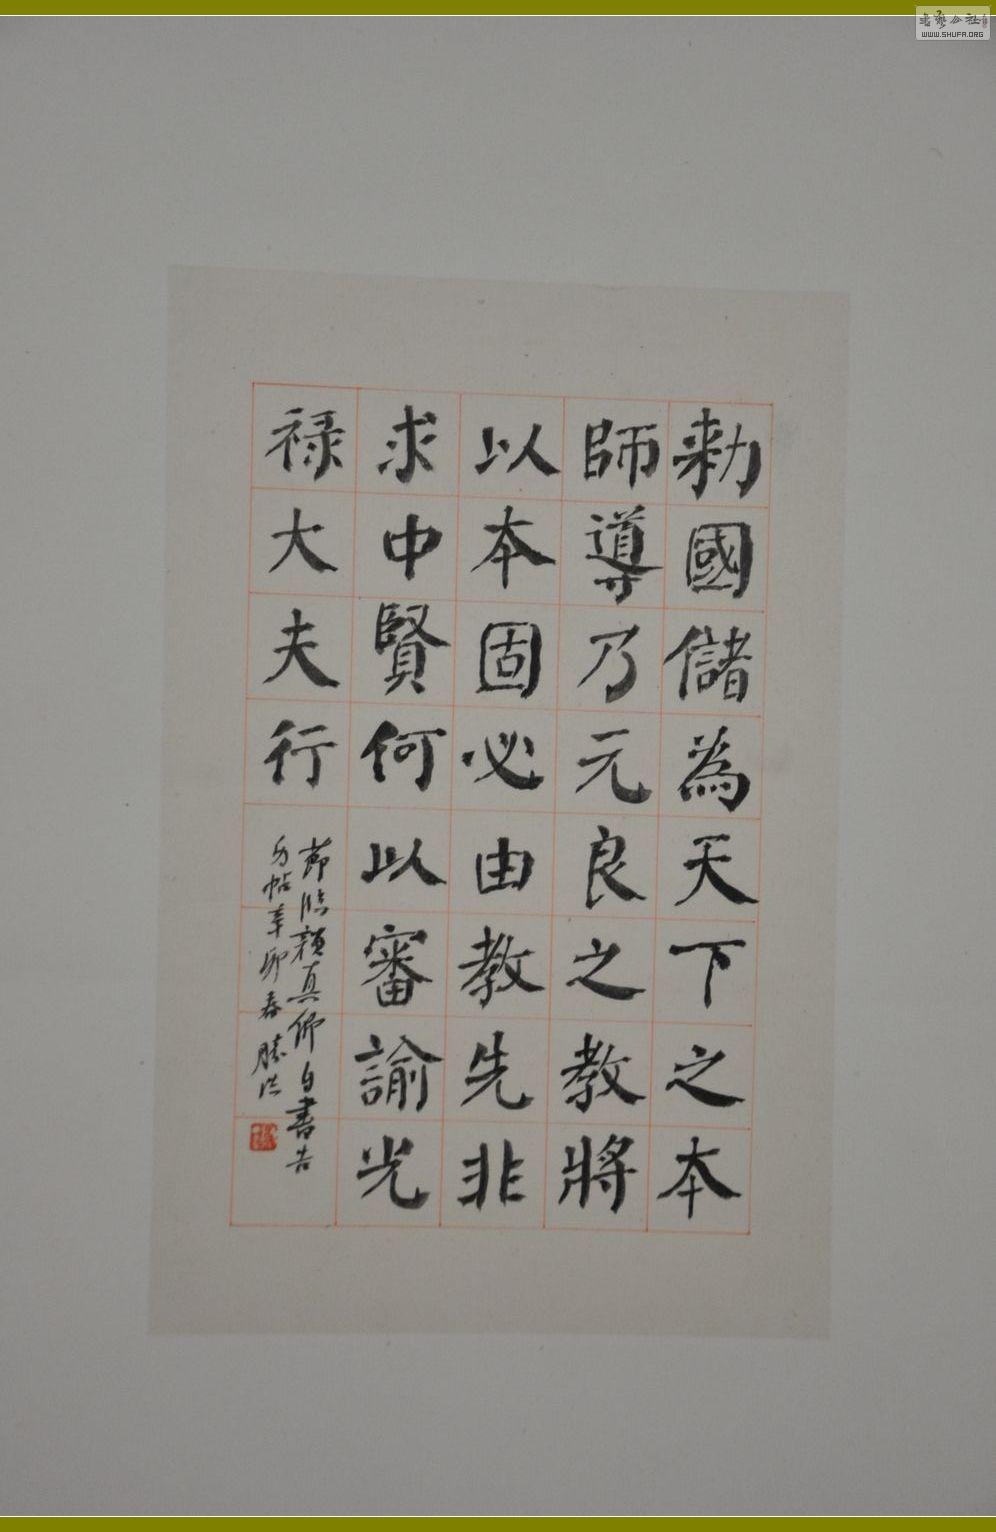 勅國儲為天下之本
師導乃元良之教將
以本固必由教先非
求中賢何以審諭光
禄大夫行
節臨顏真卿自書告
身帖辛卯春勝洪
WWW.SHUFA.ORG